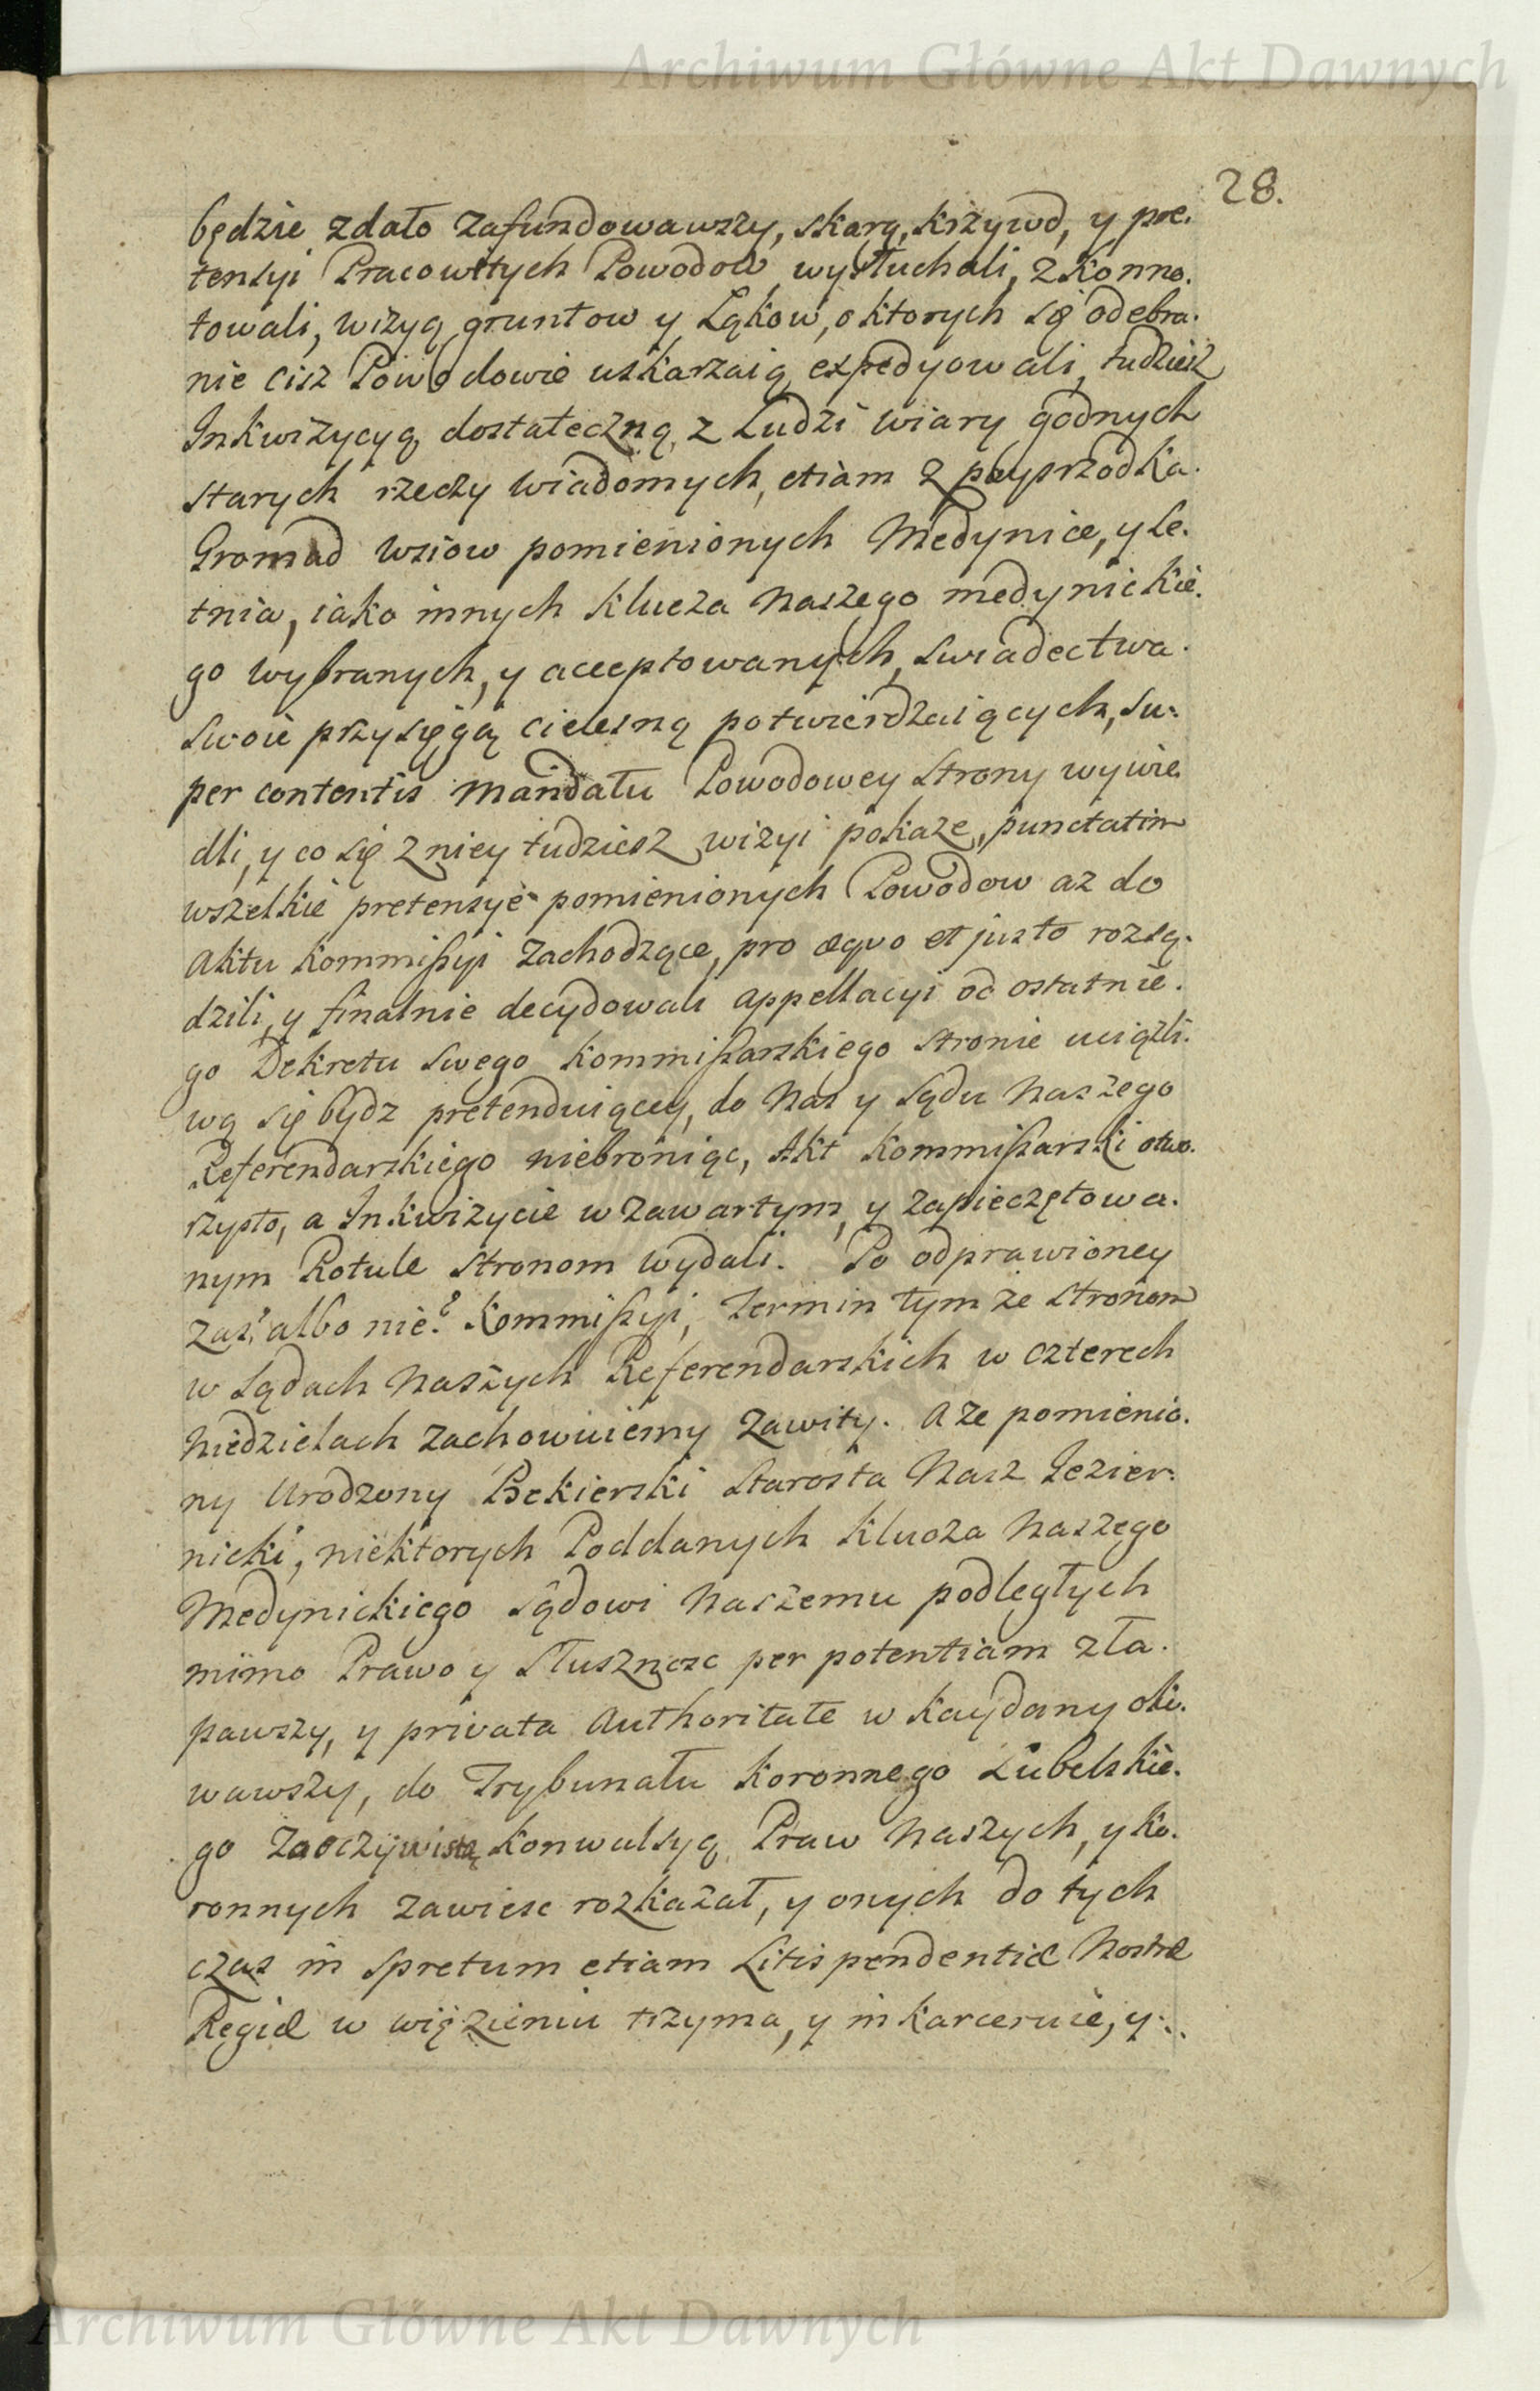 Archiwum Główne Akt Dawnych
28.
będzie zdało zafundowawszy, skarg, krzywd, y pre-
tensyi Pracowitych Powodow wysłuchali, zkonno-
towali, wizyą gruntow y Łąkow, o ktorych się odebra-
nie cisz Powodowie uskarzaią expedyowali, tudziesz
Inkwizycyą dostateczną z Ludzi wiary godnych
starych rzeczy wiadomych, etiam z
Gromad wsiow pomienionych Medynice, y Le-
tnia, iako innych klucza Naszego medynickie-
go wybranych, y acceptowanych, swiadectwa
swoie przysięgą cielesną potwierdzaiących, su-
per contentis Mandatu Powodowey Strony wywie-
dli, y co się z niey tudziesz wizyi pokaze, punctatim
wszelkie pretensye pomienionych Powodow az do
Aktu kommissyi zachodzące, pro æquo et justo rozsą-
dzili, y finalnie decydowali appellacyi od ostatnie-
go Dekretu swego kommissarskiego stronie uciązli-
wą się bydz pretenduiącey, do Nas y Sądu Naszego
Referendarskiego niebroniąc, Akt kommissarski otwo-
rzysto, a Inkwizycie w zawartym, y zapieczętowa-
nym Rotule stronom wydali. Po odprawioney
zaś albo nie? kommissyi, Termin tymze stronom
w Sądach Naszych Referendarskich w czterech
Niedzielach zachowuiemy zawity. A ze pomienio-
ny Urodzony Bekierski Starosta Nasz Jezier-
nicki, niektorych Poddanych klucza Naszego
Medynickiego Sądowi Naszemu podległych
mimo Prawo y Słusznosc per potentiam zła-
pawszy, y privata Authoritate w kaydany oku-
wawszy, do Trybunału koronnego Lubelskie-
go zaoczywistą konwulsyą Praw Naszych, y ko-
ronnych zawiesc rozkazał, y onych do tych
czas in spretum etiam Litispendentiæ Nostræ
Regiæ w więzieniu trzyma, y inkarceruie, y..
Archiwum Główne Akt Dawnych